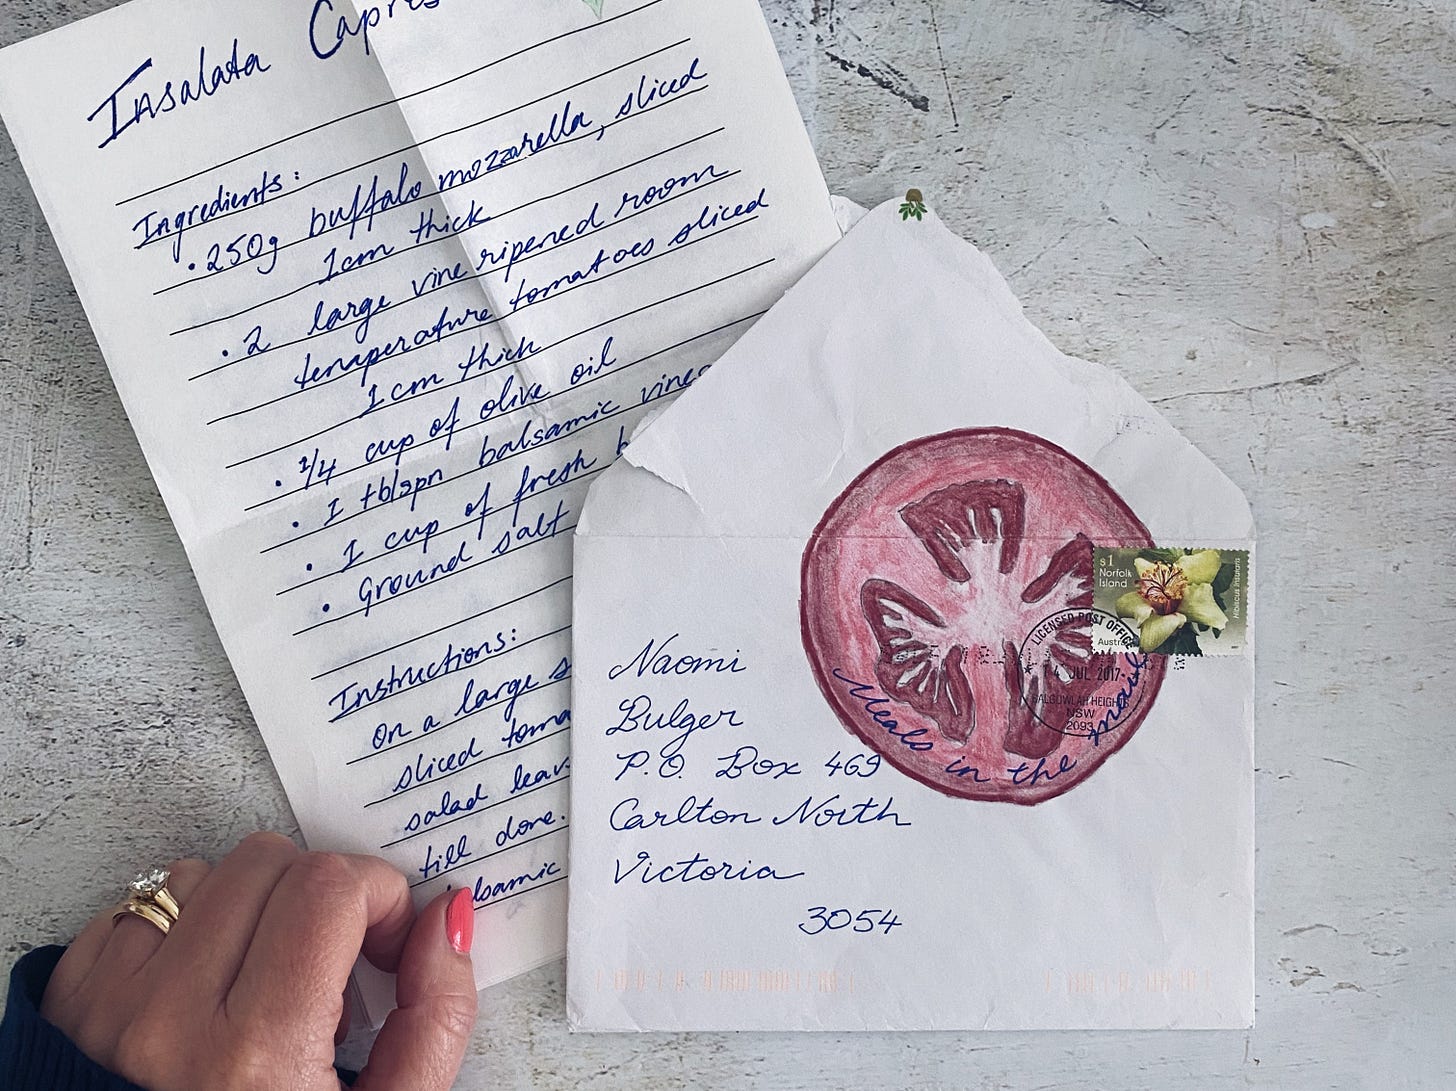 Insalata
Ingredients:
• 250g buffalo mozzarella, sliced
1cm thick
• 2 large vine ripened room
temperature tomatoes sliced
1cm thick
• 1/4 cup of olive oil
• 1 tblspn balsamic
• 1 cup of fresh
• Ground salt
Instructions:
On a large
sliced
salad
till done.
Naomi
Bulger
P.O. Box 469
Carlton North
Victoria
3054
Meals in the mail
$1
Norfolk
Island
Hibiscus insularis
LICENSED POST OFFICE
4 JUL 2017
BALGOWLAH HEIGHTS
NSW
2093